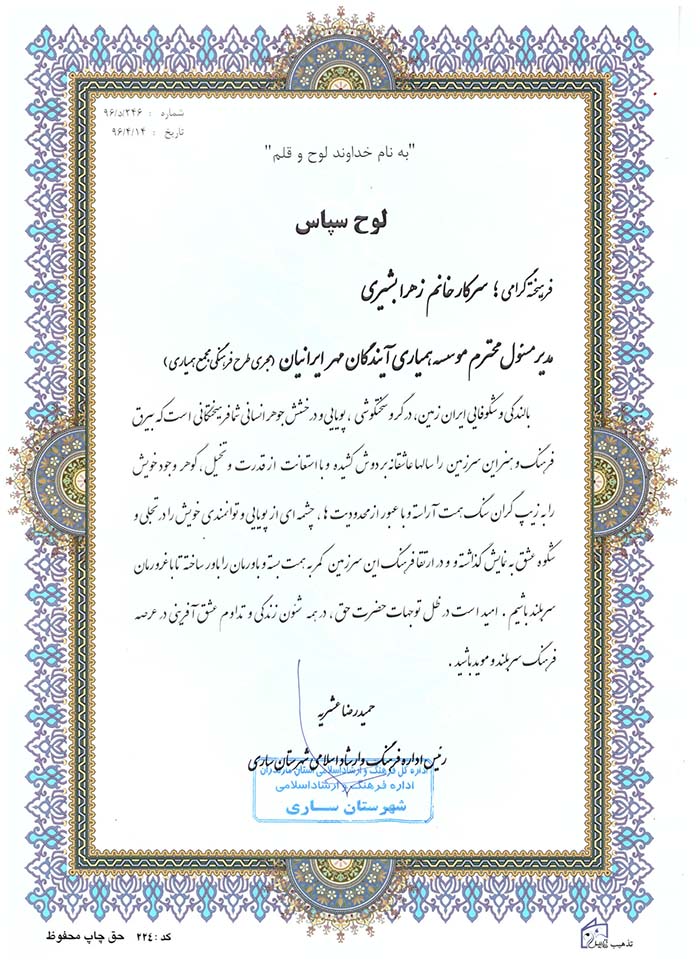 شماره : ۹۶/د/۲۴۶
تاریخ : ۹۶/۴/۱۴
"به نام خداوند لوح و قلم"
لوح سپاس
فریخته گرامی ؛ سرکار خانم زهرا بشیری
مدیر مسئول محترم موسسه همیاری آیندگان مهر ایرانیان (مجری طرح فرهنگی مجمع همیاری)
بالندگی و شکوفایی ایران زمین، در گرو سختکوشی ، پویایی و درخشش جوهر انسانی شما فریختگانی است که بیرق
فرهنگ و هنر این سرزمین را سالها عاشقانه بر دوش کشیده و با استعانت از قدرت و تخیل ، گوهر وجود خویش
را به زیب گران سنگ همت آراسته و با عبور از محدودیت ها ، چشمه ای از پویایی و توانمندی خویش را در تجلی و
شکوه عشق به نمایش گذاشته و در ارتقا فرهنگ این سرزمین کمر به همت بسته و باورمان را باور ساخته تا با غرورمان
سربلند باشیم . امید است در ظل توجهات حضرت حق ، در همه شئون زندگی و تداوم عشق آفرینی در عرصه
فرهنگ سربلند و موید باشید .
حمیدرضا عشریه
رئیس اداره فرهنگ و ارشاد اسلامی شهرستان ساری
اداره کل فرهنگ و ارشاد اسلامی استان مازندران
اداره فرهنگ و ارشاد اسلامی
شهرستان ساری
کد : ۲۲۴ حق چاپ محفوظ
تذهیب